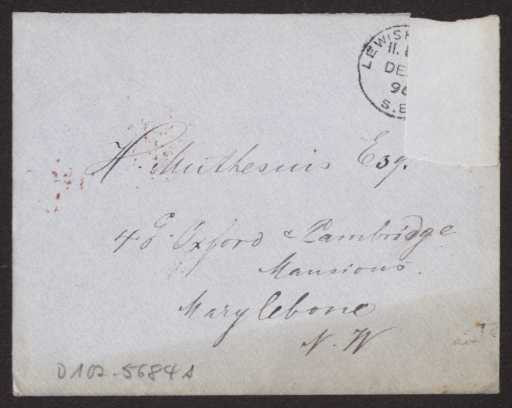 LEWISH
11.
DE
96
S.E
H. Muthesius Esq.
48 Oxford & Cambridge
Mansions.
Marylebone
N.W
D 102-5684 A